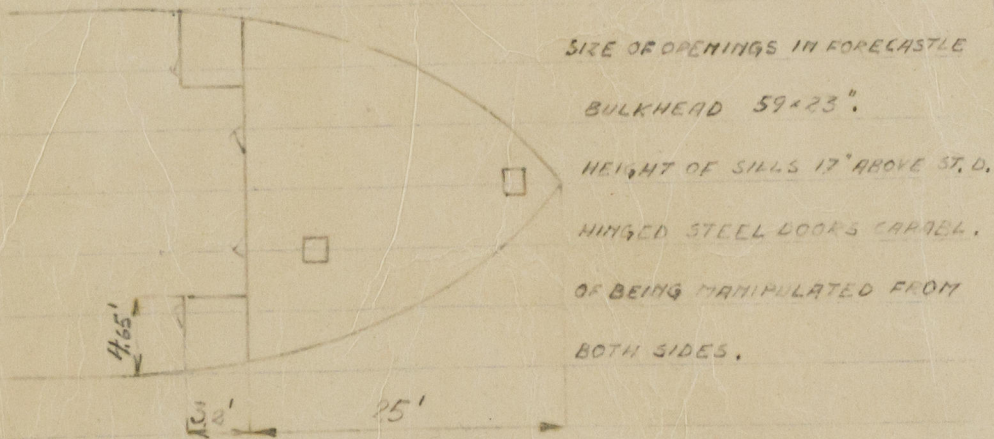 SIZE OF OPENINGS IN FORECASTLE
BULKHEAD 59×23".
HEIGHT OF SILLS 17" ABOVE ST. D.
HINGED STEEL DOORS CAPABL.
OF BEING MANIPULATED FROM
BOTH SIDES.
4.65'
25'